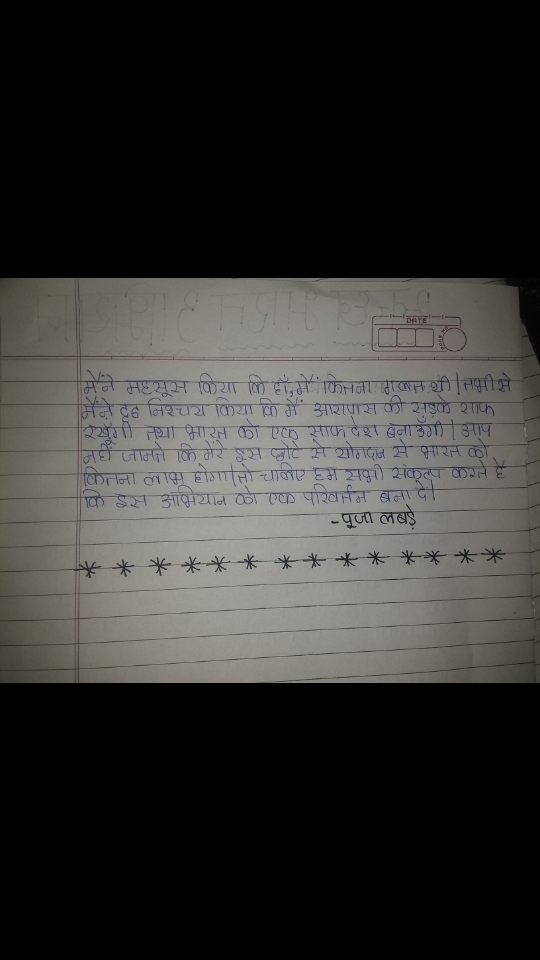 DATE
मैंने महसूस किया कि हाँ, मैं कितना गलत थी | तभी से
मैंने दृढ निश्चय किया कि मैं आसपास की सड़के साफ
रखूँगी तथा भारत को एक साफ देश बनाऊँगी | आप
नहीं जानते कि मेरे इस छोटे से योगदान से भारत को
कितना लाभ होगा | तो चलिए हम सभी संकल्प करते हैं
कि इस अभियान को एक परिवर्तन बना दे |
- पूजा लबड़े